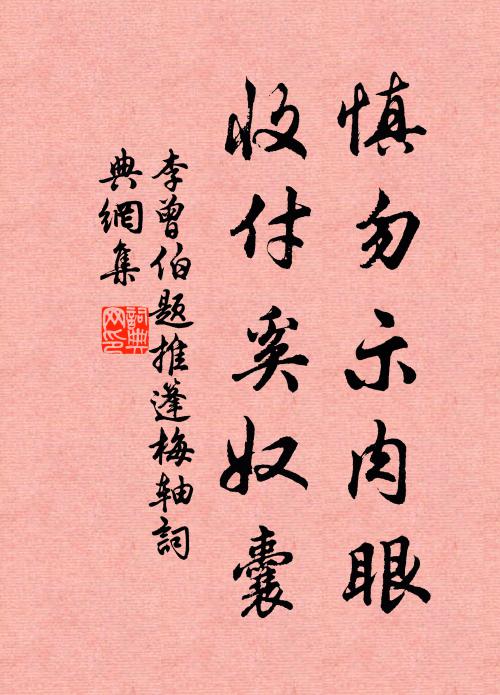 慎勿示肉眼
收付奚奴囊
李曾伯題推蓬梅轴詞
典網集
詞典
网印